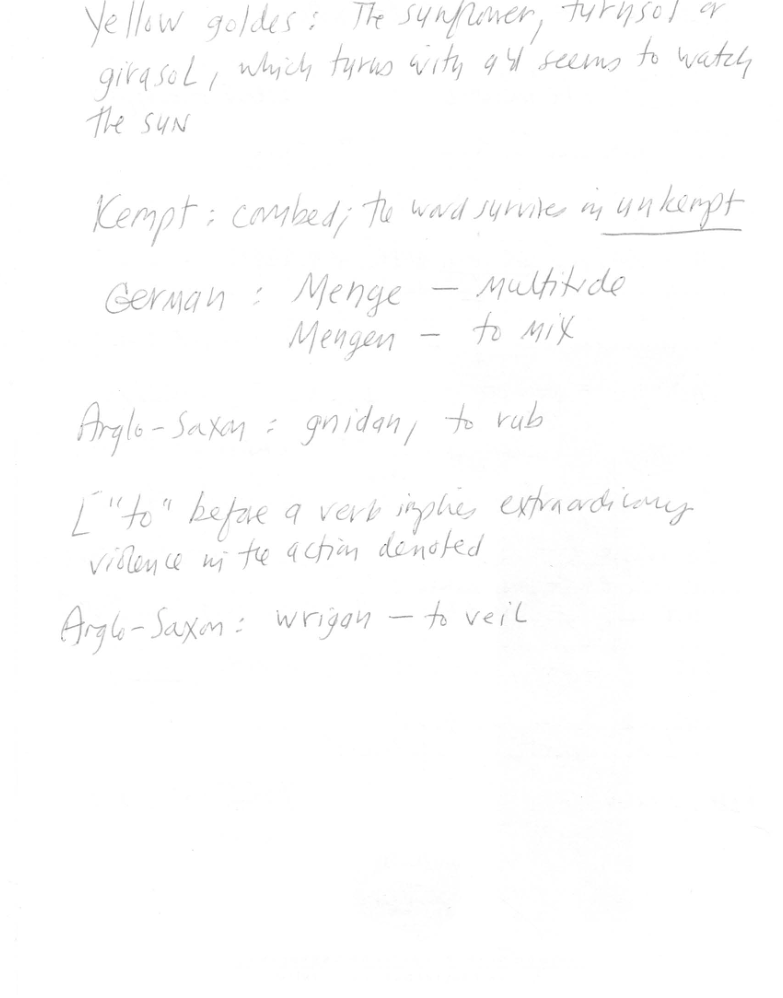 Yellow goldes: The sunflower, turnsol or
girasol, which turns with and seems to watch
the sun
Kempt: combed; the word survives in unkempt
German: Menge — multitude
Mengen — to mix
Anglo-Saxon: gnidan, to rub
["to" before a verb implies extraordinary
violence in the action denoted
Anglo-Saxon: wrigan — to veil